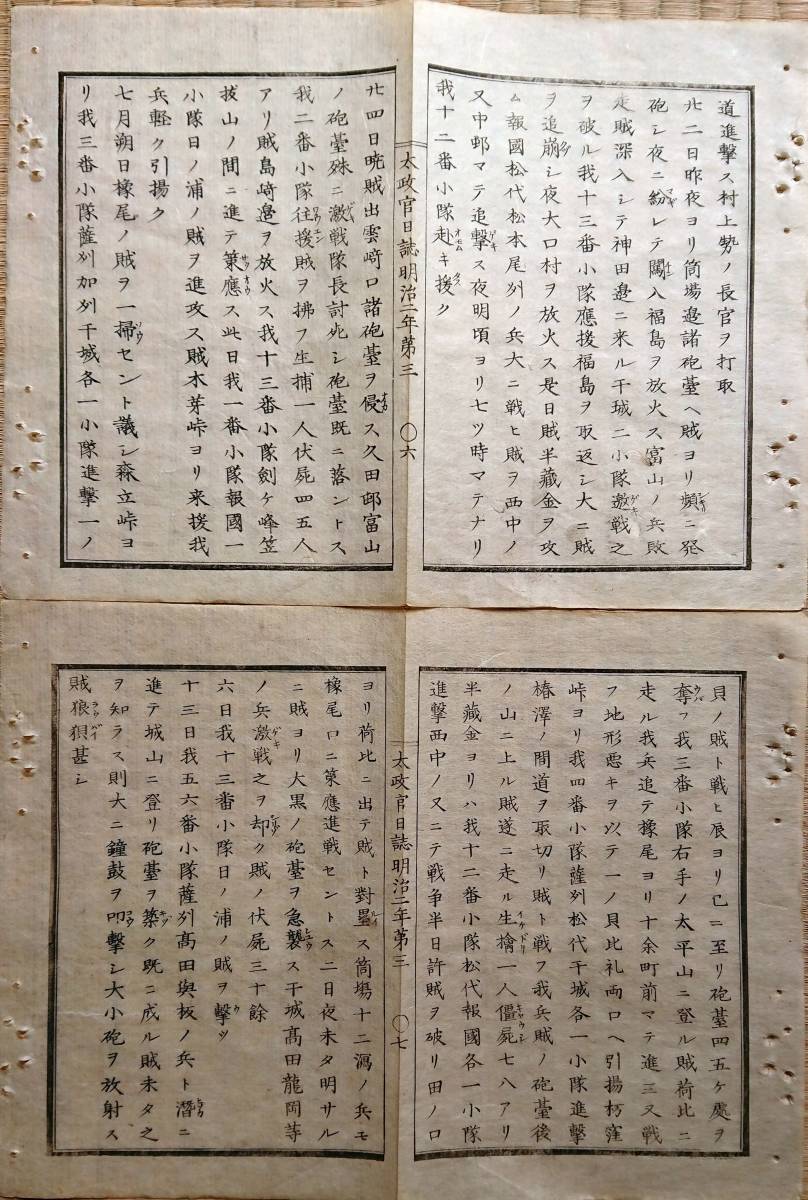 道進撃ス村上勢ノ長官ヲ打取
廿二日昨夜ヨリ筒場邉諸砲䑓ヘ賊ヨリ頻ニ発
砲シ夜ニ紛レテ闖入福島ヲ放火ス富山ノ兵敗
走賊深入シテ神田邉ニ来ル干城二小隊邀戦之
ヲ破ル我十三番小隊應援福島ヲ取返シ大ニ賊
ヲ追崩シ夜大口村ヲ放火ス是日賊半藏金ヲ攻
ム報國松代松本尾州ノ兵大ニ戦ヒ賊ヲ西中ノ
又中邨マテ追撃ス夜明頃ヨリ七ツ時マテナリ
我十二番小隊赴キ援ク
太政官日誌明治二年第三
〇六
廿四日暁賊出雲﨑口諸砲䑓ヲ侵ス久田邨富山
ノ砲䑓殊ニ激戦隊長討死シ砲䑓既ニ落ントス
我二番小隊往援賊ヲ拂フ生捕一人伏屍四五人
アリ賊島﨑邉ヲ放火ス我十三番小隊劍ケ峰笠
抜山ノ間ニ進テ策應ス此日我一番小隊報國一
小隊日ノ浦ノ賊ヲ進攻ス賊木芽峠ヨリ来援我
兵軽ク引揚ク
七月朔日橡尾ノ賊ヲ一掃セント議シ森立峠ヨ
リ我三番小隊薩州加州干城各一小隊進撃一ノ
貝ノ賊ト戦ヒ辰ヨリ巳ニ至リ砲䑓四五ケ處ヲ
奪フ我三番小隊右手ノ太平山ニ登ル賊荷比ニ
走ル我兵追テ橡尾ヨリ十余町前マテ進ミ又戦
フ地形悪キヲ以テ一ノ貝比礼両口ヘ引揚杤窪
峠ヨリ我四番小隊薩州松代干城各一小隊進撃
椿澤ノ間道ヲ取切リ賊ト戦フ我兵賊ノ砲䑓後
ノ山ニ上ル賊遂ニ走ル生擒一人僵屍七八アリ
半藏金ヨリハ我十二番小隊松代報國各一小隊
進撃西中ノ又ニテ戦争半日許賊ヲ破リ田ノ口
太政官日誌明治二年第三
〇七
ヨリ荷比ニ出テ賊ト對壘ス筒場十二潟ノ兵モ
橡尾口ニ策應進戦セントス二日夜未タ明サル
ニ賊ヨリ大黒ノ砲䑓ヲ急襲ス干城髙田龍岡等
ノ兵激戦之ヲ却ク賊ノ伏屍三十餘
六日我十三番小隊日ノ浦ノ賊ヲ撃ツ
十三日我五六番小隊薩州髙田與板ノ兵ト潛ニ
進テ城山ニ登リ砲䑓ヲ築ク既ニ成ル賊未タ之
ヲ知ラス則大ニ鐘鼓ヲ叩撃シ大小砲ヲ放射ス
賊狼狽甚シ